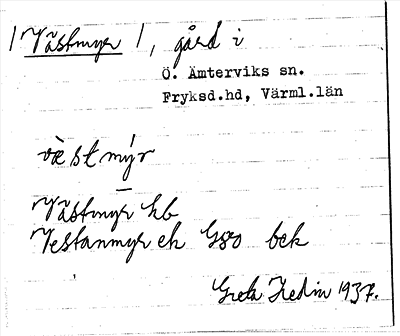 / Västmyr /, gård i
Ö. Ämterviks sn.
Fryksd.hd, Värml.län
væ̀stmýr
—
Västmyr hb
Vestanmyr ek G80 bek
Greta Hedin 1937.